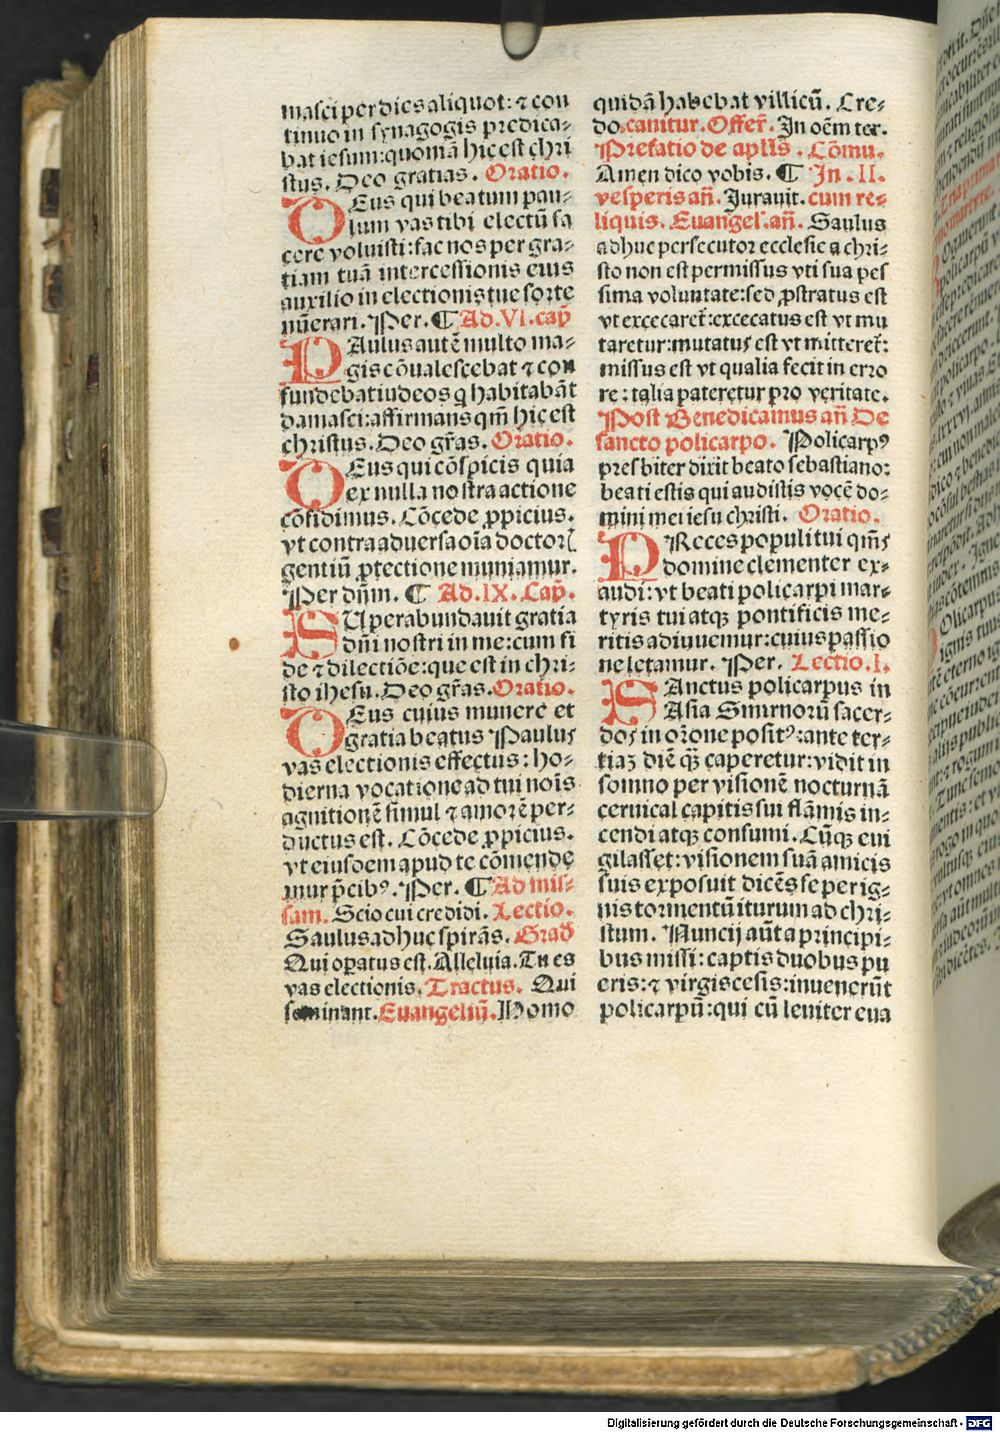 masci per dies aliquot: ⁊ con
tinuo in synagogis predica-
bat iesum: quoniā hic est chri
stus. Deo gratias. Oratio.
DEus qui beatum pau-
lum vas tibi electū fa
cere voluisti: fac nos per gra-
tiam tuā intercessionis eius
auxilio in electionis tue sorte
nūerari. Per. ¶ Ad. VI. cap̄
PAulus autē multo ma-
gis cōualescebat ⁊ con
fundebat iudeos q̄ habitabāt
damasci: affirmans qm̄ hic est
christus. Deo gr̄as. Oratio.
DEus qui cōspicis quia
ex nulla nostra actione
cōfidimus. Cōcede ꝓpicius.
vt contra aduersa oīa doctorꝭ
gentiū ꝓtectione muniamur.
Per dn̄m. ¶ Ad. IX. Cap̄.
SUperabundauit gratia
dn̄i nostri in me: cum fi
de ⁊ dilectiōe: que est in chri-
sto ihesu. Deo gr̄as. Oratio.
DEus cuius munere et
gratia beatus Paulus
vas electionis effectus: ho-
dierna vocatione ad tui noīs
agnitionē simul ⁊ amorē per-
ductus est. Cōcede ꝓpicius.
vt eiusdem apud te cōmende
mur p̄cibꝰ. Per. ¶ Ad mis-
sam. Scio cui credidi. Lectio.
Saulus adhuc spirās. Grad̄
Qui oꝑatus est. Alleluia. Tu es
vas electionis. Tractus. Qui
seminant. Euangeliū. Homo
quidā habebat villicū. Cre-
do. canitur. Offer̄. In oēm ter.
Prefatio de apl̄is. Cōmu.
Amen dico vobis. ¶ In. II.
vesperis an̄. Jurauit. cum re-
liquis. Euangel̄. an̄. Saulus
adhuc persecutor ecclesie a chri-
sto non est permissus vti sua pes
sima voluntate: sed ꝓstratus est
vt excecaret᷑: excecatus est vt mu
taretur: mutatus est vt mitteret᷑:
missus est vt qualia fecit in erro
re: talia pateretur pro veritate.
Post Benedicamus an̄ De
sancto policarpo. Policarpꝰ
presbiter dixit beato sebastiano:
beati estis qui audistis vocē do-
mini mei iesu christi. Oratio.
PReces populi tui qm̄s
domine clementer ex-
audi: vt beati policarpi mar-
tyris tui atqꝫ pontificis me-
ritis adiuuemur: cuius passio
ne letamur. Per. Lectio. I.
SAnctus policarpus in
Asia Smirnorū sacer-
dos in or̄one positꝰ: ante ter-
tiaꝫ diē qꝫ̄ caperetur: vidit in
somno per visionē nocturnā
ceruical capitis sui flāmis in-
cendi atqꝫ consumi. Cūqꝫ eui
gilasset: visionem suā amicis
suis exposuit dicēs se per ig-
nis tormentū iturum ad chri-
stum. Nuncij aūt a principi-
bus missi: captis duobus pu
eris: ⁊ virgis cesis: inuenerūt
policarpū: qui cū leniter eua
Digitalisierung gefördert durch die Deutsche Forschungsgemeinschaft - DFG